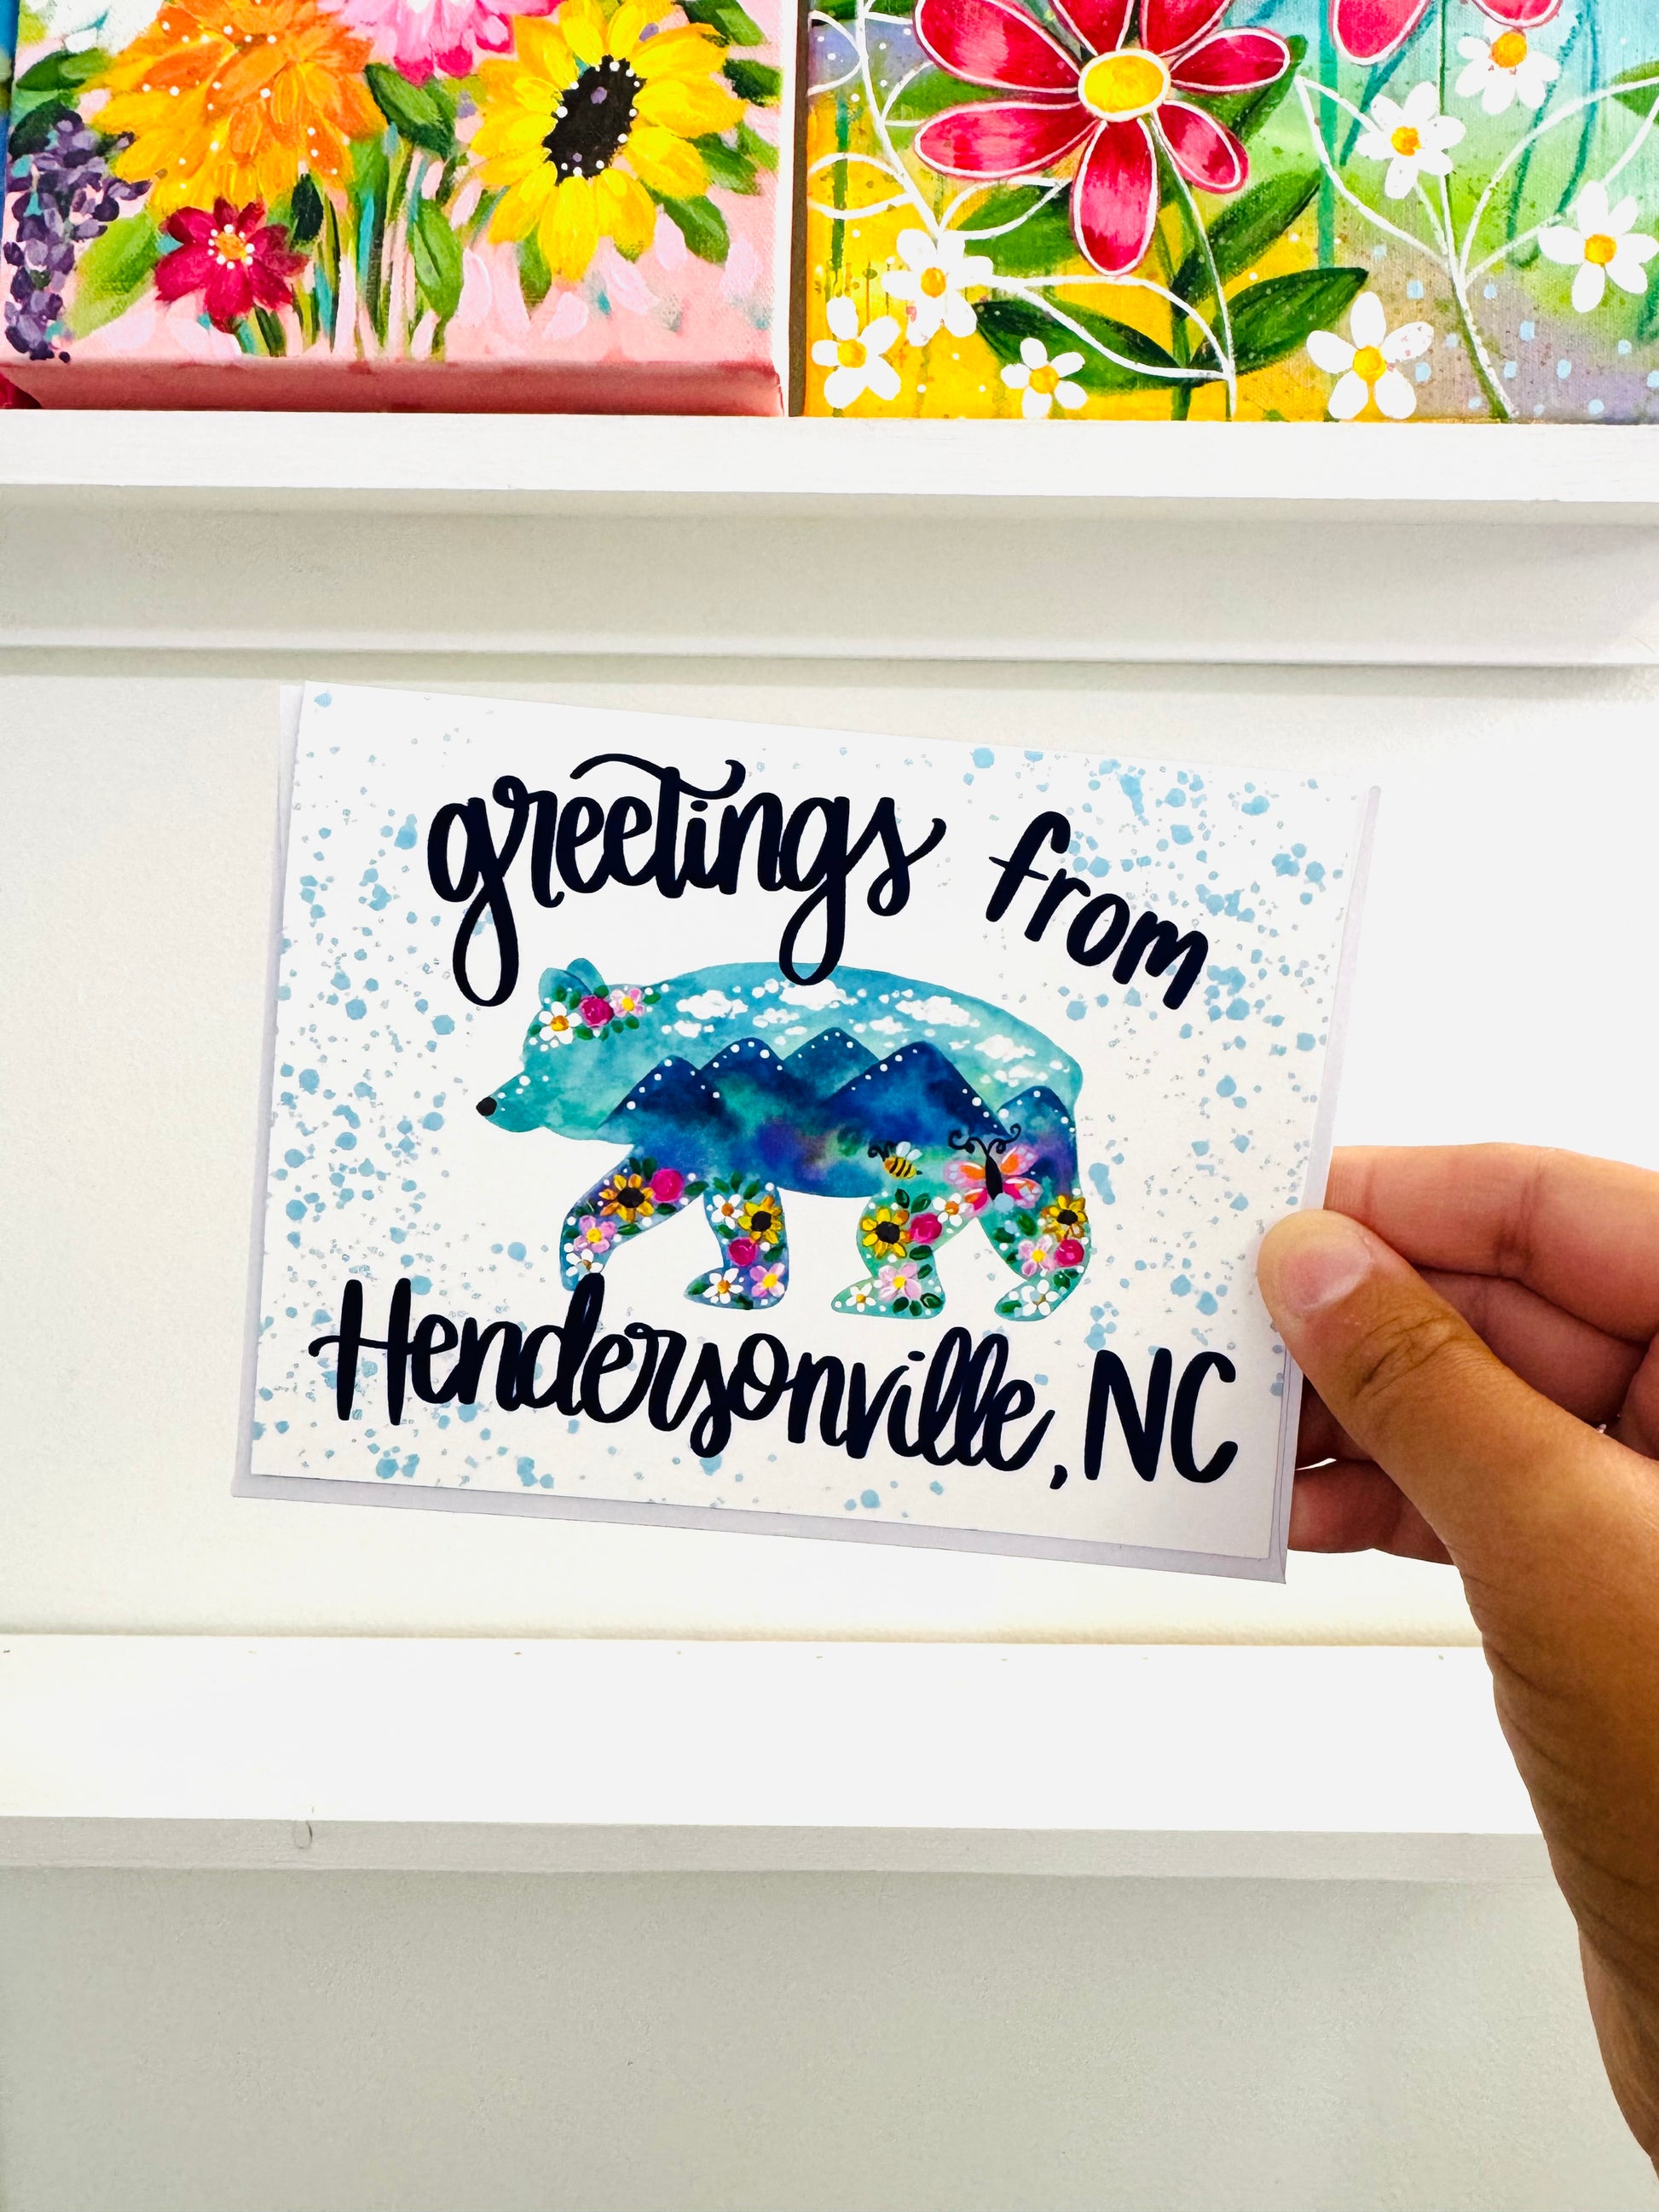 greetings from
Hendersonville, NC